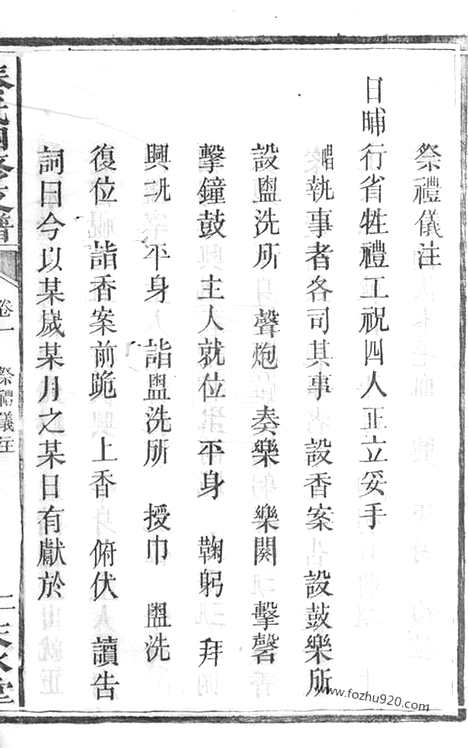 祭禮儀注
日晡行省牲禮工祝四人正立妥手
唱執事者各司其事 設香案 設鼓樂所
設盥洗所 聲炮 奏樂 樂闋 擊磬
擊鐘鼓 主人就位 平身 鞠躬 拜
興 平身 詣盥洗所 授巾 盥洗
復位 詣香案前跪 上香 俯伏 讀告
詞曰今以某歲某月之某日有獻於
卷一 祭禮儀注
www.fozhu920.com